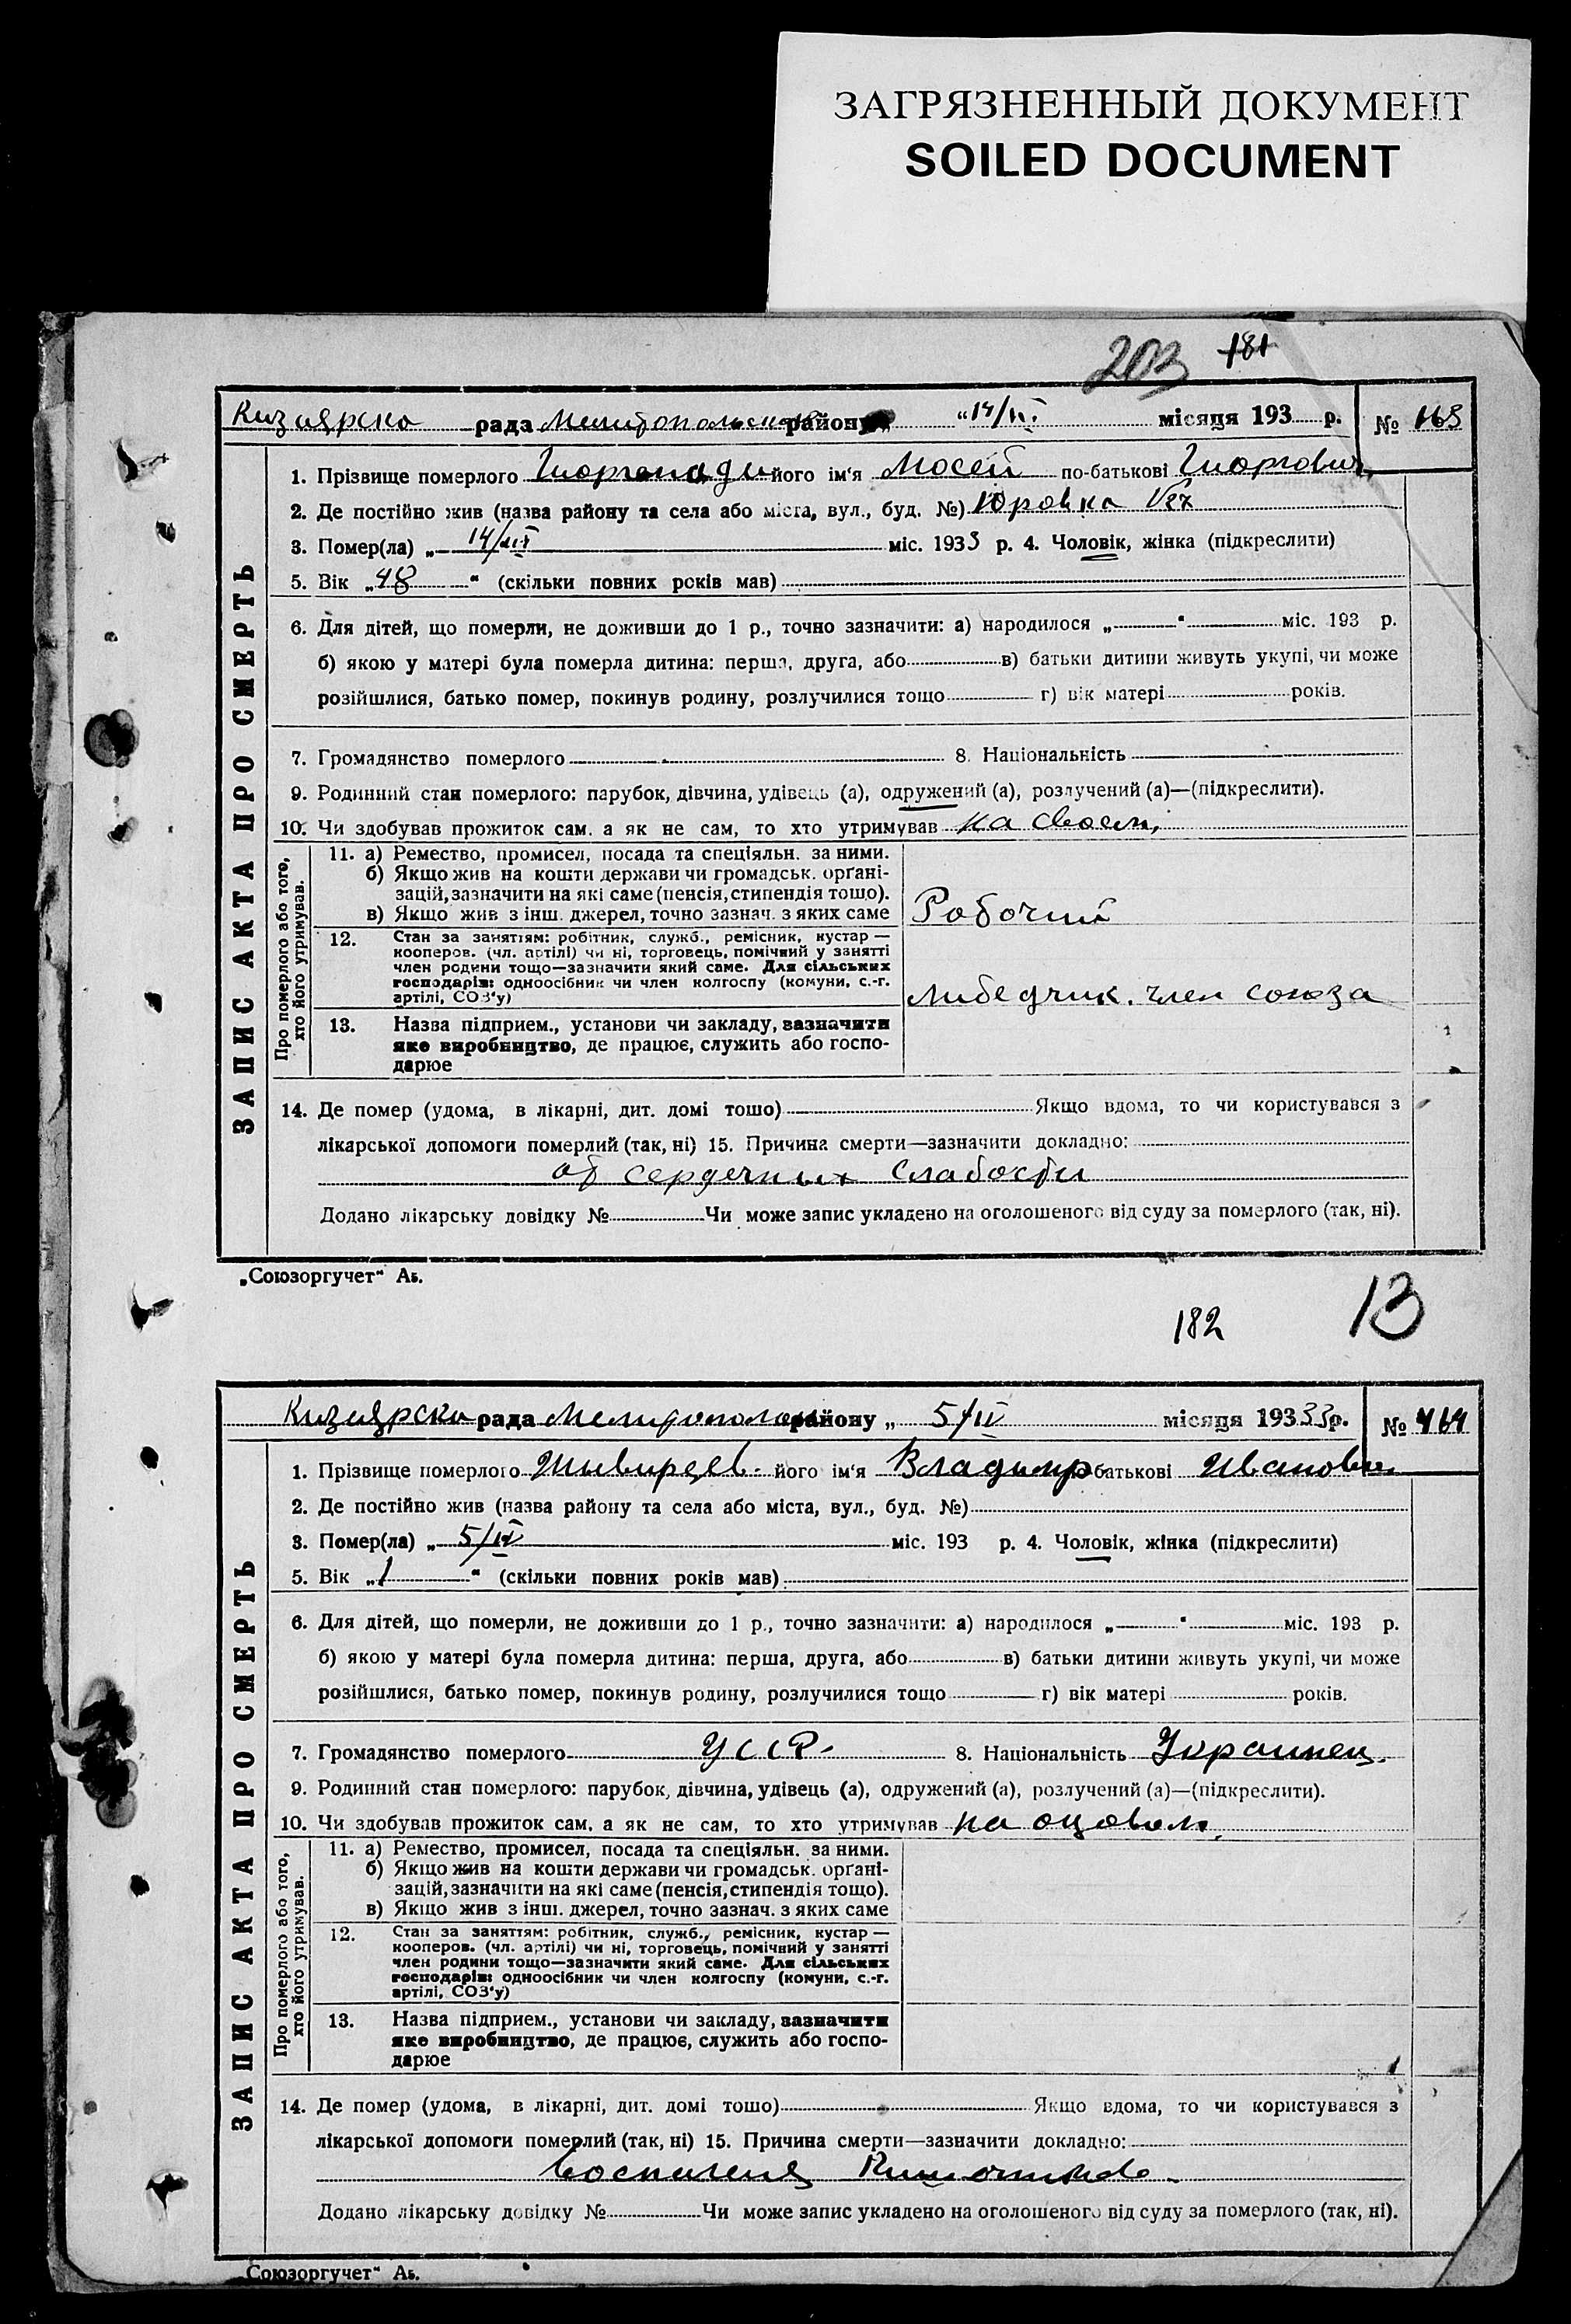 ЗАГРЯЗНЕННЫЙ ДОКУМЕНТ
SOILED DOCUMENT
203 181
Кизиярска рада Мелитопольска району „ “14/ місяця 193 р. № 163
ЗАПИС АКТА ПРО СМЕРТЬ
1. Прізвище померлого його ім‘я Мосей по-батькові
2. Де постійно жив (назва району та села або міста, вул., буд. №) Юровка
3. Помер(ла) „ 14/III міс. 1933 р. 4. Чоловік, жінка (підкреслити)
5. Вік „48“ (скільки повних років мав)
6. Для дітей, що померли, не доживши до 1 р., точно зазначити: а) народилося „ “ міс. 193 р.
б) якою у матері була померла дитина: перша, друга, або в) батьки дитини живуть укупі, чи може
розійшлися, батько помер, покинув родину, розлучилися тощо г) вік матері років.
7. Громадянство померлого 8. Національність
9. Родинний стан померлого: парубок, дівчина, удівець (а), одружений (а), розлучений (а)—(підкреслити).
10. Чи здобував прожиток сам, а як не сам, то хто утримував на своем
Про померлого або того, хто його утримував.
11. а) Ремество, промисел, посада та спеціяльн. за ними.
б) Якщо жив на кошти держави чи громадськ. орґані-
зацій, зазначити на які саме (пенсія, стипендія тощо).
в) Якщо жив з інш. джерел, точно зазнач. з яких саме Робочий
12. Стан за заняттям: робітник, служб., ремісник, кустар—
кооперов. (чл. артілі) чи ні, торговець, помічний у занятті
член родини тощо—зазначити який саме. Для сільських
господарів: одноосібник чи член колгоспу (комуни, с.-г.
артілі, СОЗ‘у) член союза
13. Назва підприєм., установи чи закладу, зазначити
яке виробництво, де працює, служить або госпо-
дарює
14. Де помер (удома, в лікарні, дит. домі тощо) Якщо вдома, то чи користувався з
лікарської допомоги померлий (так, ні) 15. Причина смерти—зазначити докладно:
от сердечных слабости
Додано лікарську довідку № Чи може запис укладено на оголошеного від суду за померлого (так, ні).
„Союзоргучет“ Аь.
182 13
Кизиярска рада району „ 5/IV місяця 19333 р. № 464
ЗАПИС АКТА ПРО СМЕРТЬ
1. Прізвище померлого його ім‘я Владимир по-батькові Иванович
2. Де постійно жив (назва району та села або міста, вул., буд. №)
3. Помер(ла) „ 5/IV міс. 193 р. 4. Чоловік, жінка (підкреслити)
5. Вік „1“ (скільки повних років мав)
6. Для дітей, що померли, не доживши до 1 р., точно зазначити: а) народилося „ “ міс. 193 р.
б) якою у матері була померла дитина: перша, друга, або в) батьки дитини живуть укупі, чи може
розійшлися, батько помер, покинув родину, розлучилися тощо г) вік матері років.
7. Громадянство померлого УССР. 8. Національність Украинец.
9. Родинний стан померлого: парубок, дівчина, удівець (а), одружений (а), розлучений (а)—(підкреслити).
10. Чи здобував прожиток сам, а як не сам, то хто утримував на
Про померлого або того, хто його утримував.
11. а) Ремество, промисел, посада та спеціяльн. за ними.
б) Якщо жив на кошти держави чи громадськ. орґані-
зацій, зазначити на які саме (пенсія, стипендія тощо).
в) Якщо жив з інш. джерел, точно зазнач. з яких саме
12. Стан за заняттям: робітник, служб., ремісник, кустар—
кооперов. (чл. артілі) чи ні, торговець, помічний у занятті
член родини тощо—зазначити який саме. Для сільських
господарів: одноосібник чи член колгоспу (комуни, с.-г.
артілі, СОЗ‘у)
13. Назва підприєм., установи чи закладу, зазначити
яке виробництво, де працює, служить або госпо-
дарює
14. Де помер (удома, в лікарні, дит. домі тощо) Якщо вдома, то чи користувався з
лікарської допомоги померлий (так, ні) 15. Причина смерти—зазначити докладно:
Додано лікарську довідку № Чи може запис укладено на оголошеного від суду за померлого (так, ні).
Союзоргучет“ Аь.